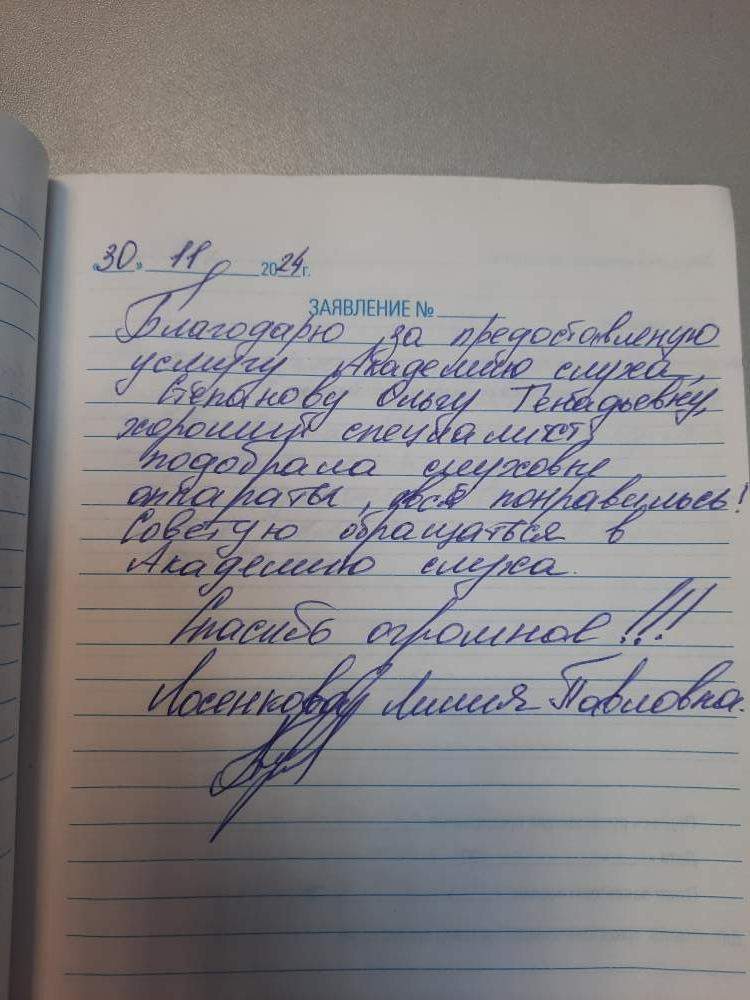 «30» 11 2024г.
ЗАЯВЛЕНИЕ №
Благодарю за предоставленую
услугу Академию слуха,
Степанову Ольгу Генадьевну,
хороший специалист,
подобрала слуховые
аппараты, всё понравилось!
Советую обращаться в
Академию слуха.
Спасибо огромное!!!
Лосенкова Лилия Павловна.